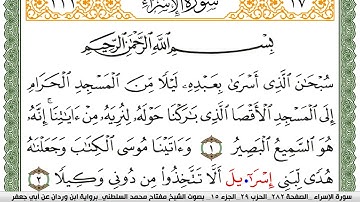 ١١١ سُورَةُ الإِسْرَاءِ ١٧
بِسْمِ اللَّهِ الرَّحْمَٰنِ الرَّحِيمِ
سُبْحَٰنَ ٱلَّذِىٓ أَسْرَىٰ بِعَبْدِهِۦ لَيْلًا مِّنَ ٱلْمَسْجِدِ ٱلْحَرَامِ
إِلَى ٱلْمَسْجِدِ ٱلْأَقْصَا ٱلَّذِى بَٰرَكْنَا حَوْلَهُۥ لِنُرِيَهُۥ مِنْ ءَايَٰتِنَآ ۚ إِنَّهُۥ
هُوَ ٱلسَّمِيعُ ٱلْبَصِيرُ ١ وَءَاتَيْنَا مُوسَى ٱلْكِتَٰبَ وَجَعَلْنَٰهُ
هُدًى لِّبَنِىٓ إِسْرَٰٓءِيلَ أَلَّا تَتَّخِذُوا۟ مِن دُونِى وَكِيلًا ٢
سورة الإسراء . الصفحة ٢٨٢ الحزب ٢٩ . الجزء ١٥ . بصوت الشيخ مفتاح محمد السلطني . برواية ابن وردان عن أبي جعفر